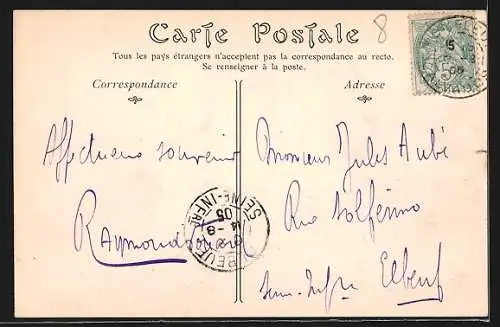 8
Carte Postale
Tous les pays étrangers n'acceptent pas la correspondance au recto.
Se renseigner à la poste.
Correspondance
Adresse
Affectueux souvenir
Raymond
Monsieur Jules Aubé
Rue Solférino
Seine-Infre Elbeuf
SEINE-INFRE
05